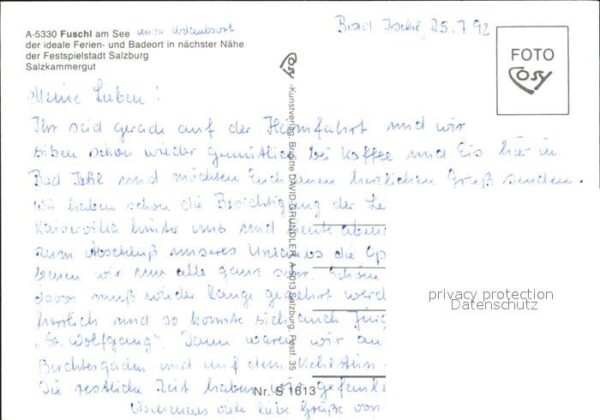 A-5330 Fuschl am See unser Urlaubsort
der ideale Ferien- und Badeort in nächster Nähe
der Festspielstadt Salzburg
Salzkammergut
Bad Ischl, 25.7.92
FOTO
Cosy
Cosy -Kunstverlag, Brigitte DAVID-GRÜNDLER, A-5013 Salzburg, Postf. 35
Meine Lieben!
Ihr seid gerade auf der Heimfahrt und wir
sitzen schon wieder gemütlich bei Kaffee und Eis hier in
Bad Ischl und möchten Euch einen herzlichen Gruß senden.
Wir haben schon die Besichtigung der
Kaiservilla hinter uns und heute
zum Abschluß unseres Urlaubs die
wir nun alle ganz sehr
davon muß wieder lange gezehrt werd
herrlich und so konnte sich auch
"St. Wolfgang". Dann waren wir
Berchtesgaden und auf dem Kehlstein
Die restliche Zeit haben wir
viele liebe Grüße von
privacy protection
Datenschutz
Nr. S 1613